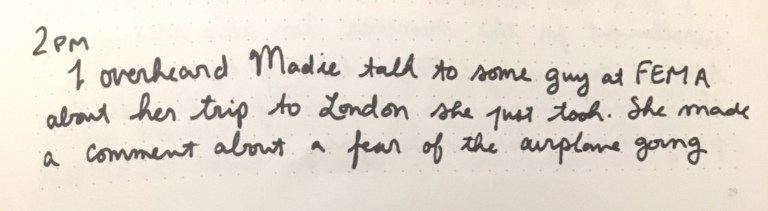 2 PM
I overheard Madie talk to some guy at FEMA
about her trip to London she just took. She made
a comment about a fear of the airplane going
29